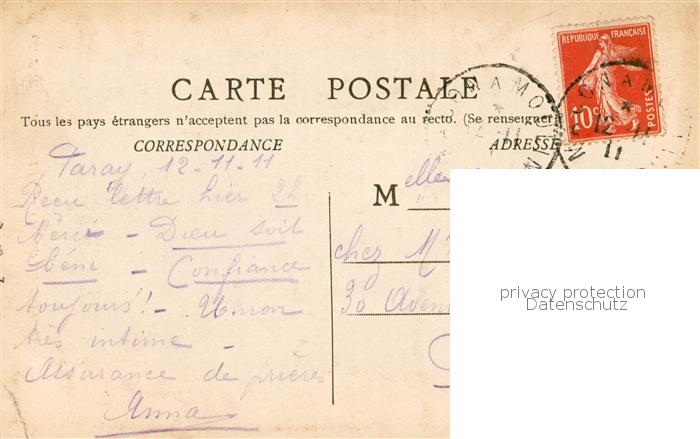 RÉPUBLIQUE FRANÇAISE
10c
POSTES
CARTE POSTALE
Tous les pays étrangers n'acceptent pas la correspondance au recto. (Se renseigner
CORRESPONDANCE
ADRESSE
12-11-11
Reçu lettre hier 2h
Merci - Dieu soit
béni - Confiance
toujours! - Union
très intime -
Assurance de prières
Anna
Melle
chez M
30 Aven
12 11
11
privacy protection
Datenschutz